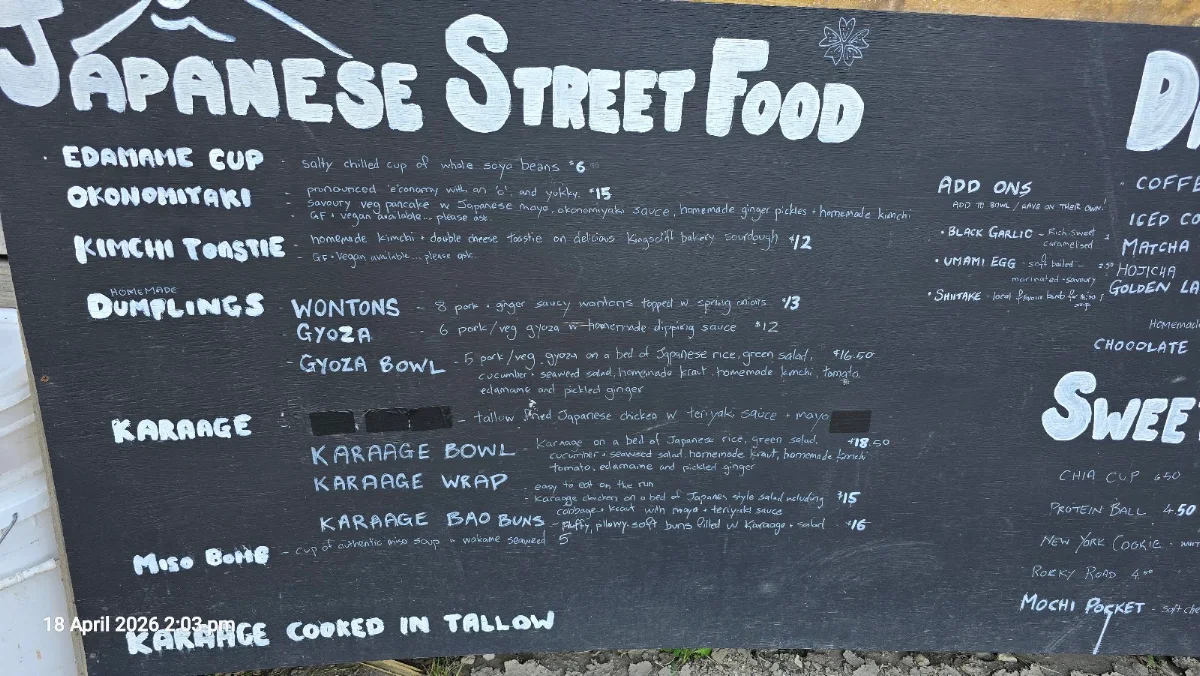 JAPANESE STREET FOOD
· EDAMAME CUP - salty chilled cup of whole soya beans $6
OKONOMIYAKI - pronounced 'economy with an 'o', and yukky. $15
- savoury veg pancake w Japanese mayo, okonomiyaki sauce, homemade ginger pickles + homemade kimchi
- GF + vegan available... please ask
KIMCHI TOASTIE - homemade kimchi + double cheese toastie on delicious bakery sourdough $12
- GF + Vegan available... please ask
HOMEMADE
DUMPLINGS
WONTONS - 8 pork + ginger saucy wontons topped w spring onions $13
GYOZA - 6 pork/veg gyoza w homemade dipping sauce $12
- GYOZA BOWL - 5 pork/veg gyoza on a bed of Japanese rice, green salad, $16.50
cucumber + seaweed salad, homemade kraut, homemade kimchi, tomato,
edamame and pickled ginger
KARAAGE
- tallow fried Japanese chicken w teriyaki sauce + mayo
KARAAGE BOWL - Karaage on a bed of Japanese rice, green salad, $18.50
cucumber + seaweed salad, homemade kraut, homemade kimchi
tomato, edamame and pickled ginger
KARAAGE WRAP - easy to eat on the run
- Karaage chicken on a bed of Japanese style salad including $15
cabbage + kraut with mayo + teriyaki sauce
KARAAGE BAO BUNS - fluffy, pillowy soft buns filled w Karaage + salad $16
MISO BOMB - cup of authentic miso soup w wakame seaweed 5
KARAAGE COOKED IN TALLOW
18 April 2026 2:03 pm
ADD ONS
ADD TO BOWL / HAVE ON THEIR OWN!
· BLACK GARLIC - Rich sweet
caramelised
· UMAMI EGG - soft boiled - 2.50
marinated - savoury
· SHIITAKE - local flavour bomb for
D
· COFFE
ICED CO
MATCHA
HOJICHA
GOLDEN LA
Homemad
CHOCOLATE
SWEE
CHIA CUP 6.50
PROTEIN BALL 4.50
NEW YORK COOKIE -
ROCKY ROAD 4.50
MOCHI POCKET - soft che